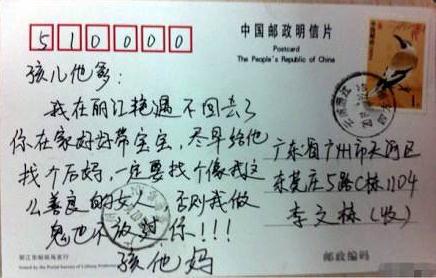 510000
中国邮政明信片
Postcard
The People's Republic of China
孩儿他爹：
我在丽江艳遇不回去了
你在家好好带宝宝，尽早给他
找个后妈，一定要找个像我这
么善良的女人，否则我做
鬼也不放过你！！！
孩他妈
广东省广州市天河区
东莞庄5路C栋1104
李文栋（收）
丽江市邮政局发行
邮政编码